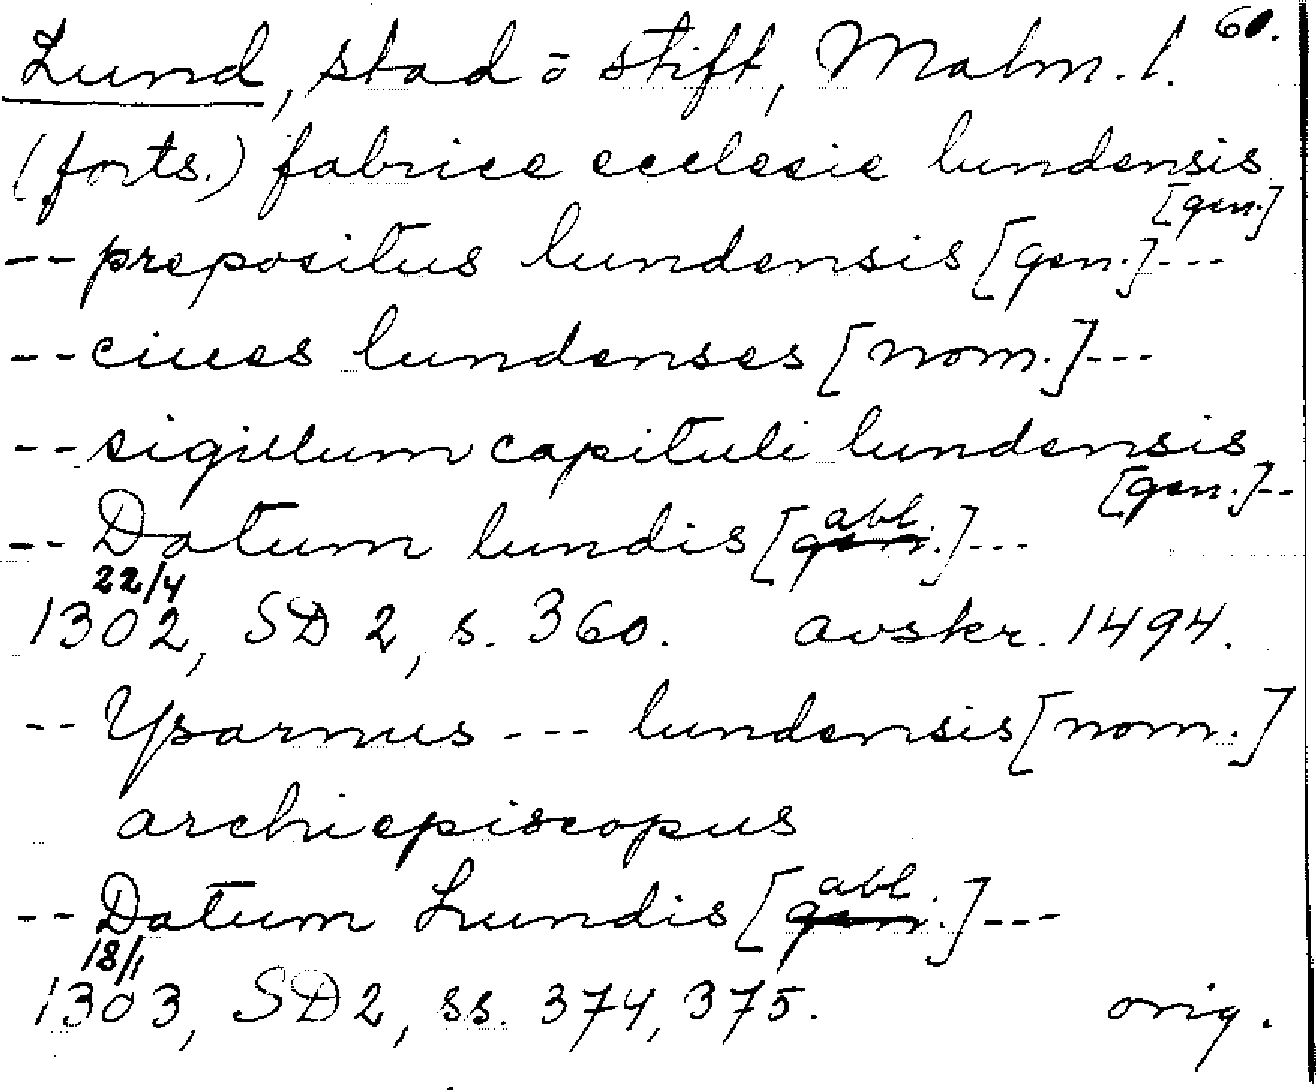 60.
Lund, stad o stift, Malm. l.
(forts.) fabrice ecclesie lundensis
[gen.]
-- prepositus lundensis [gen.]---
-- ciues lundenses [nom.]---
-- sigillum capituli lundensis
[gen.]--
abl.
-- Datum lundis [gen.]---
22/4
1302, SD 2, s. 360. avskr. 1494.
-- Ysarnus --- lundensis [nom.]
archiepiscopus
abl.
-- Datum Lundis [gen.]---
18/1
1303, SD 2, ss. 374, 375. orig.